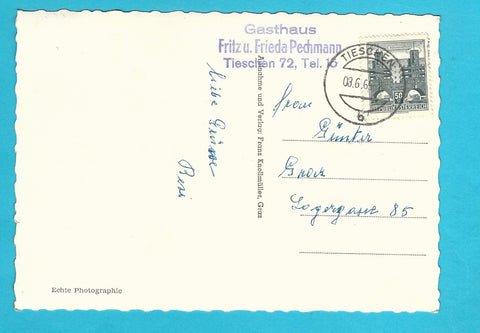 Gasthaus
Fritz u. Frieda Pechmann
Tieschen 72, Tel. 16
TIESCHEN
08.6.6
b
50
Liebe Grüsse
Resi
Aufnahme und Verlag: Franz Knollmüller, Graz
Günter
Graz
Lagergasse 85
Echte Photographie